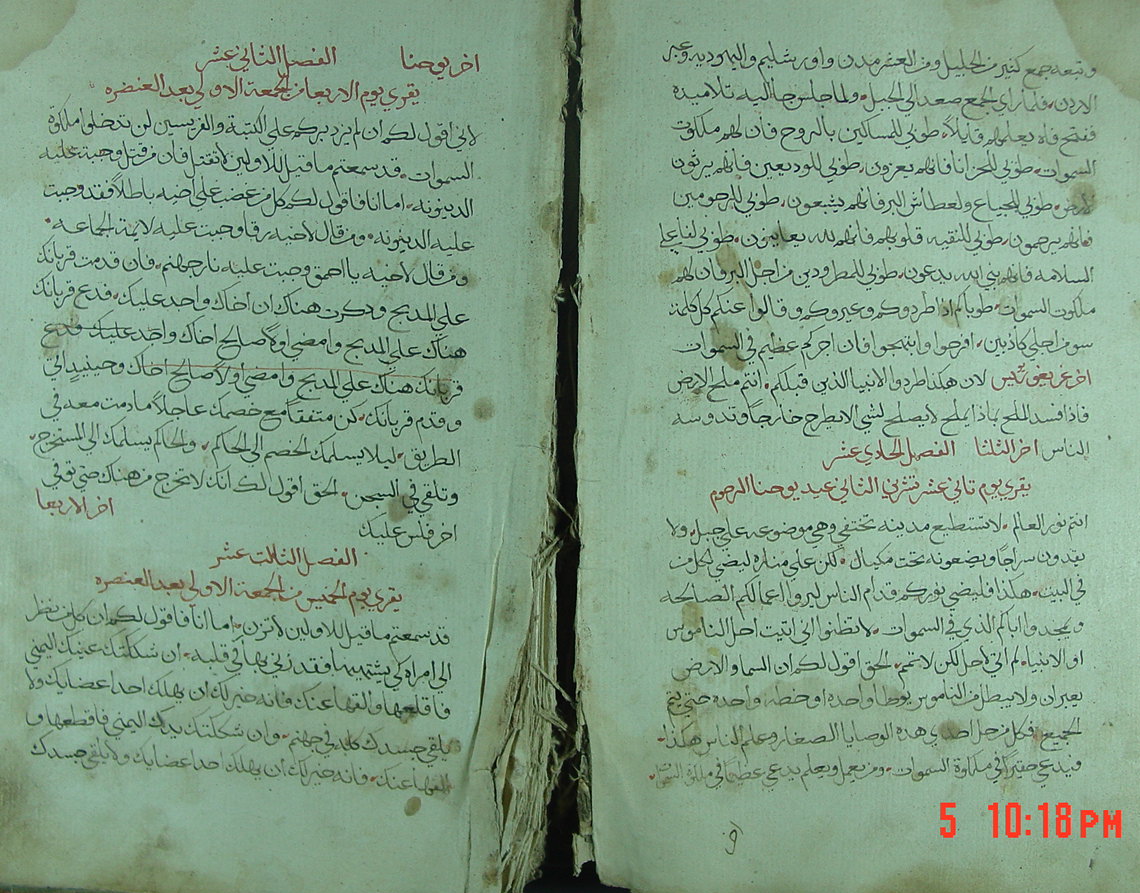 وتبعه جمع كثير من الجليل ومن العشر مدن واورشليم واليهوديه وعبر
الاردن. فلما راي الجمع صعد الي الجبل. ولما جلس جا اليه تلاميده
ففتح فاه يعلمهم قايلاً. طوبي للمساكين بالروح فان لهم ملكوت
السموات. طوبي للحزانا فانهم يعزون. طوبي للودعين فانهم يرثون
الارض. طوبي للجياع والعطاش البر فانهم يشبعون. طوبي للرحومين
فانهم يرحمون. طوبي للنقيه قلوبهم فانهم لله يعاينون. طوبي لفاعلي
السلامه فانهم بني الله يدعون. طوبي للمطرودين من اجل البر فان لهم
ملكوت السموات. طوباكم اذا طردوكم وعيروكم وقالوا عنكم كل كلمة
سو من اجلي كاذبين. افرحوا وابتهجوا فان اجركم عظيم في السموات
لان هكذا طردوا الانبيا الذين قبلكم. انتم ملح الارض
فاذا فسد الملح بماذا يملح لا يصلح لشي الا يطرح خارجاً وتدوسه
الناس اخر الثلثا الفصل الحادي عشر
يقري يوم ثاني عشر تشرين الثاني عيد يوحنا الرحوم
انتم نور العالم. لا تستطيع مدينه تختفي وهي موضوعه علي جبل. ولا
يقدون سراجاً ويضعونه تحت مكيال. لكن علي مناره ليضي لكل من
في البيت. هكذا فليضي نوركم قدام الناس ليروا اعمالكم الصالحه
ويمجدوا اباكم الذي في السموات. لا تظنوا اني اتيت احل الناموس
او الانبيا. لم اتي لاحل لكن لاتمم. الحق اقول لكم ان السما والارض
يعبران ولا يبطل من الناموس يوطا واحده او خطه واحده حتي يتم
الجميع فكل من حل احدي هذه الوصايا الصغار وعلم الناس هكذا.
فيدعي حقيراً في ملكوة السموات. ومن يعمل ويعلم يدعي عظيماً في ملكوة السموات
اخر يوحنا الفصل الثاني عشر
يقري يوم الاربعا من الجمعة الاولي بعد العنصره
لاني اقول لكم ان لم يزد بركم علي الكتبة والفريسين لن تدخلوا ملكوة
السموات. قد سمعتم ما قيل للاولين لا تقتل فان من قتل وجبت عليه
الدينونه. اما انا فاقول لكم كل من غضب علي اخيه باطلاً فقد وجبت
عليه الدينونه. ومن قال لاخيه رقا وجبت عليه لاية الجماعه.
ومن قال لاخيه يا احمق وجبت عليه نار جهنم. فان قدمت قربانك
علي المدبح ودكرت هناك ان اخاك واجد عليك. فدع قربانك
هناك علي المدبح وامضي اولاً صالح اخاك واجد عليك فدع
قربانك هناك علي المدبح وامضي اولاً صالح اخاك وحينيدٍ اتي
وقدم قربانك. كن متفقاً مع خصمك عاجلاً ما دمت معه في
الطريق. ليلا يسلمك الخصم الي الحاكم. والحاكم يسلمك الي المستخرج.
وتلقي في السجن. الحق اقول لك انك لا تخرج من هناك حتي توفي
اخر فلس عليك اخر الاربعا
الفصل الثالث عشر
يقري يوم الخميس من الجمعة الاولي بعد العنصره
قد سمعتم ما قيل للاولين لا تزن. اما انا فاقول لكم ان كل من نظر
الي امراه كي يشتهيها فقد زني بها في قلبه. ان شككتك عينك اليمني
فاقلعها والقها عنك فانه خير لك ان يهلك احد اعضايك ولا
يلقي جسدك كله في جهنم. وان شككتك يدك اليمني فاقطعها و
القها عنك. فانه خير لك ان يهلك احد اعضايك ولا يلقي جسدك
5 10:18 PM